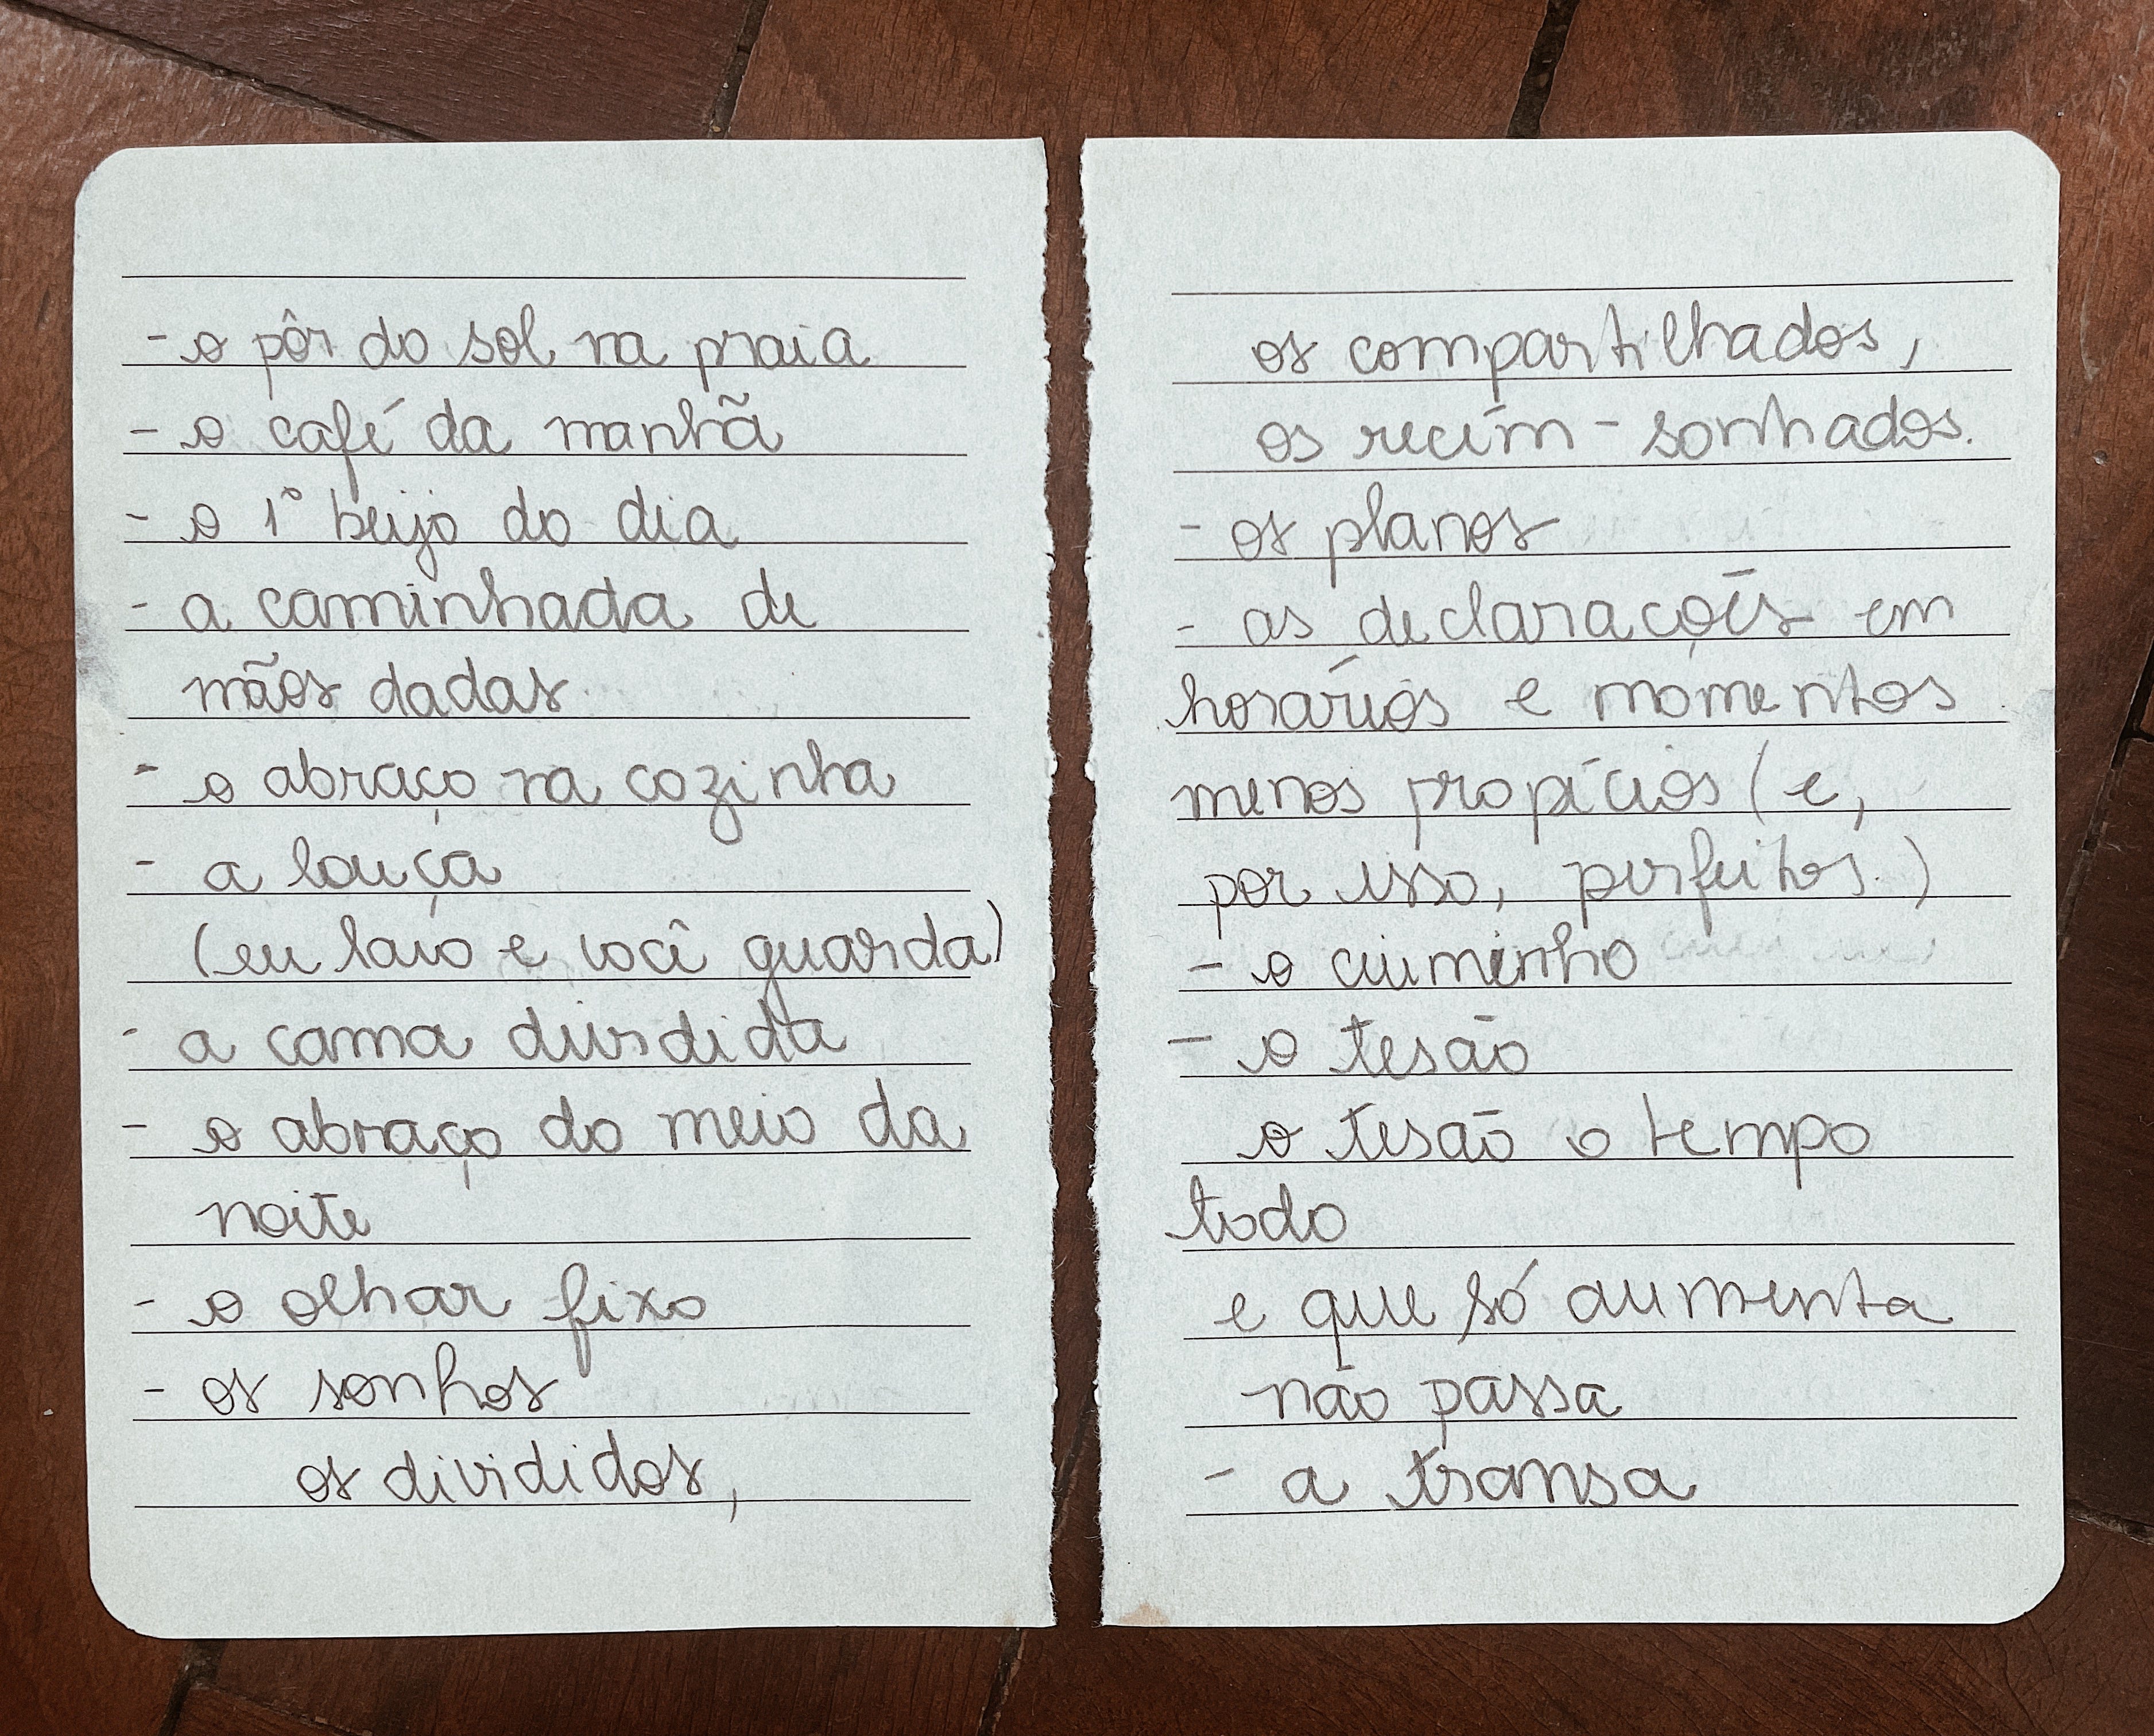 - o pôr do sol na praia
- o café da manhã
- o 1° beijo do dia
- a caminhada de
mãos dadas
- o abraço na cozinha
- a louça
(eu lavo e você guarda)
- a cama dividida
- o abraço do meio da
noite
- o olhar fixo
- os sonhos
os divididos,
os compartilhados,
os recém-sonhados.
- os planos
- as declarações em
horários e momentos
menos propícios (e,
por isso, perfeitos.)
- o ciuminho
- o tesão
o tesão o tempo
todo
e que só aumenta
não passa
- a transa